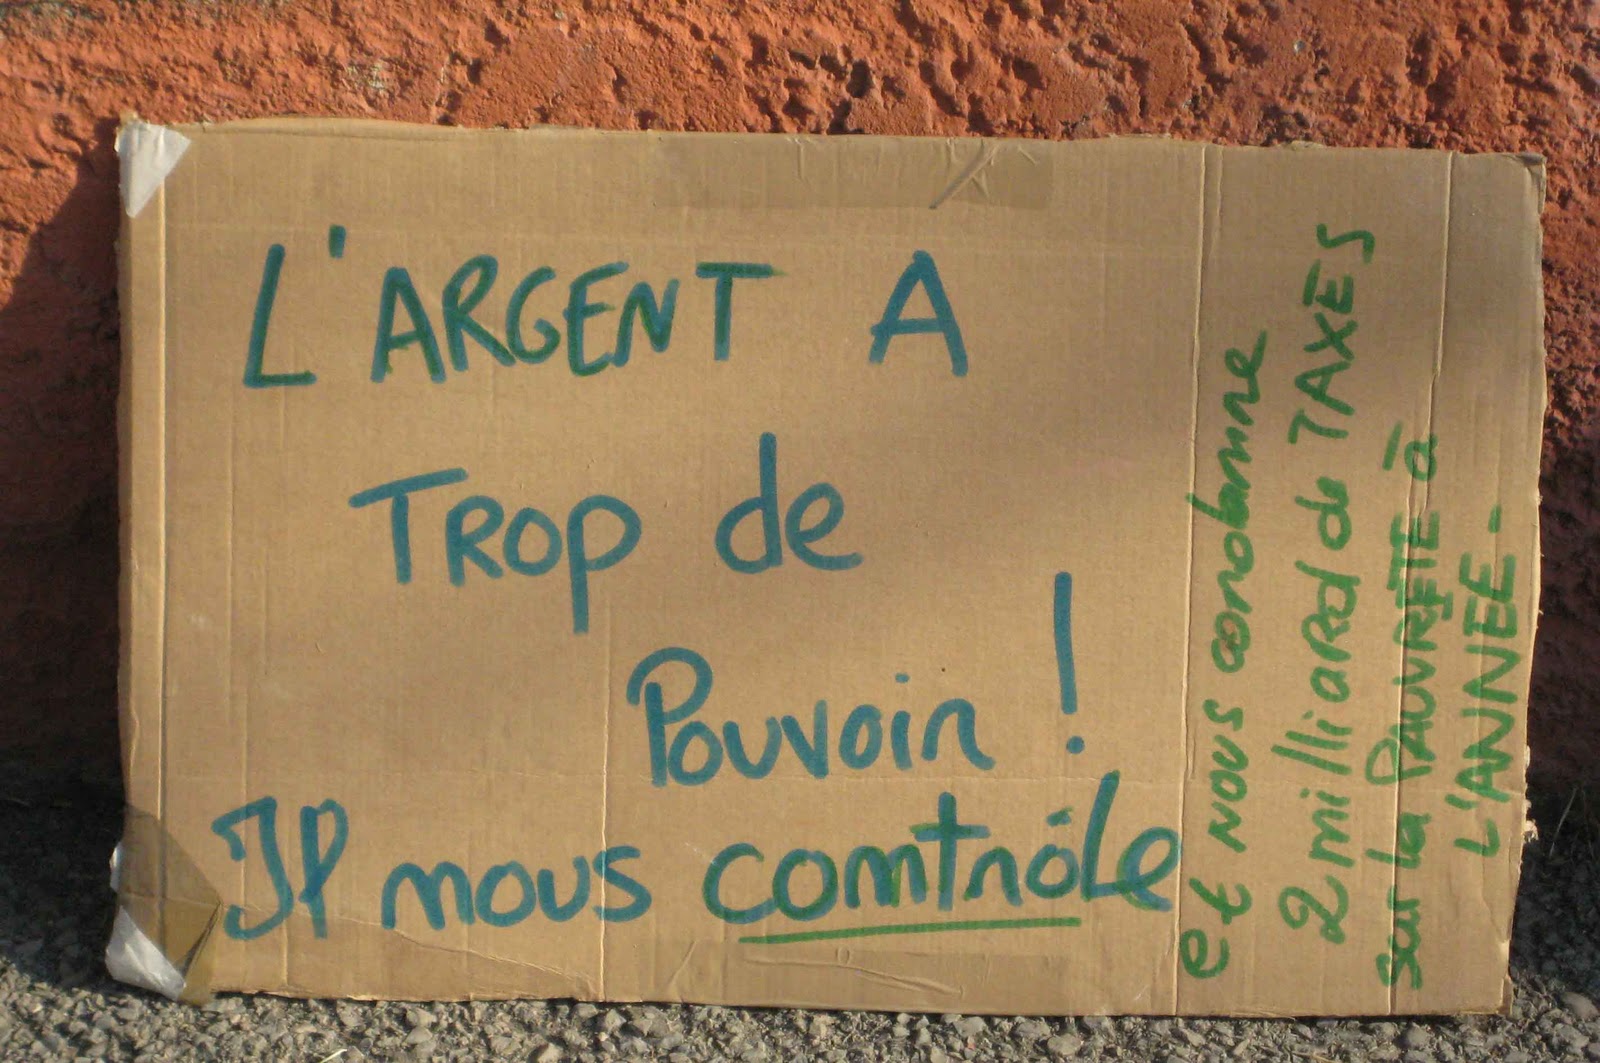 L'ARGENT A
TROP de
Pouvoir !
Il nous contrôle
et nous condamne
2 milliard de TAXES
sur la PAUVRETE à
L'ANNEE-